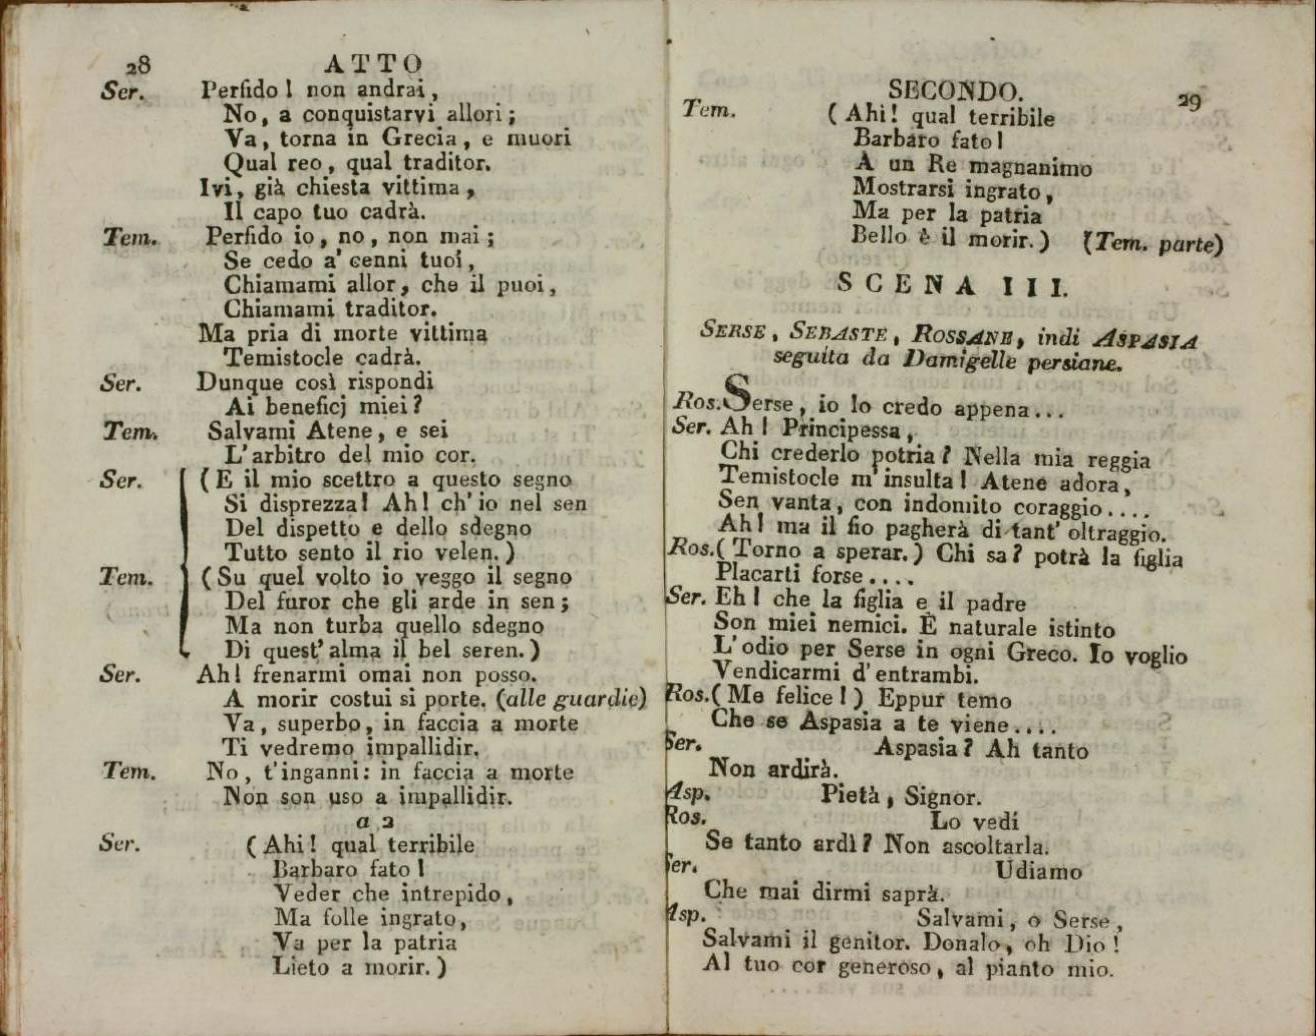 28 ATTO
Ser. Perfido! non andrai,
No, a conquistarvi allori;
Va, torna in Grecia, e muori
Qual reo, qual traditor.
Ivi, già chiesta vittima,
Il capo tuo cadrà.
Tem. Perfido io, no, non mai;
Se cedo a' cenni tuoi,
Chiamami allor, che il puoi,
Chiamami traditor.
Ma pria di morte vittima
Temistocle cadrà.
Ser. Dunque così rispondi
Ai beneficj miei?
Tem. Salvami Atene, e sei
L'arbitro del mio cor.
Ser. (E il mio scettro a questo segno
Si disprezza! Ah! ch'io nel sen
Del dispetto e dello sdegno
Tutto sento il rio velen.)
Tem. (Su quel volto io veggo il segno
Del furor che gli arde in sen;
Ma non turba quello sdegno
Di quest'alma il bel seren.)
Ser. Ah! frenarmi omai non posso.
A morir costui si porte. (alle guardie)
Va, superbo, in faccia a morte
Ti vedremo impallidir.
Tem. No, t'inganni: in faccia a morte
Non son uso a impallidir.
a 2
Ser. (Ahi! qual terribile
Barbaro fato!
Veder che intrepido,
Ma folle ingrato,
Va per la patria
Lieto a morir.)
SECONDO. 29
Tem. (Ahi! qual terribile
Barbaro fato!
A un Re magnanimo
Mostrarsi ingrato,
Ma per la patria
Bello è il morir.) (Tem. parte)
SCENA III.
SERSE, SEBASTE, ROSSANE, indi ASPASIA
seguita da Damigelle persiane.
Ros. Serse, io lo credo appena...
Ser. Ah! Principessa,
Chi crederlo potria? Nella mia reggia
Temistocle m'insulta! Atene adora,
Sen vanta, con indomito coraggio....
Ah! ma il fio pagherà di tant' oltraggio.
Ros. (Torno a sperar.) Chi sa? potrà la figlia
Placarti forse....
Ser. Eh! che la figlia e il padre
Son miei nemici. È naturale istinto
L'odio per Serse in ogni Greco. Io voglio
Vendicarmi d'entrambi.
Ros. (Me felice!) Eppur temo
Che se Aspasia a te viene....
Ser. Aspasia? Ah tanto
Non ardirà.
Asp. Pietà, Signor.
Ros. Lo vedi
Se tanto ardì? Non ascoltarla.
Ser. Udiamo
Che mai dirmi saprà.
Asp. Salvami, o Serse,
Salvami il genitor. Donalo, oh Dio!
Al tuo cor generoso, al pianto mio.